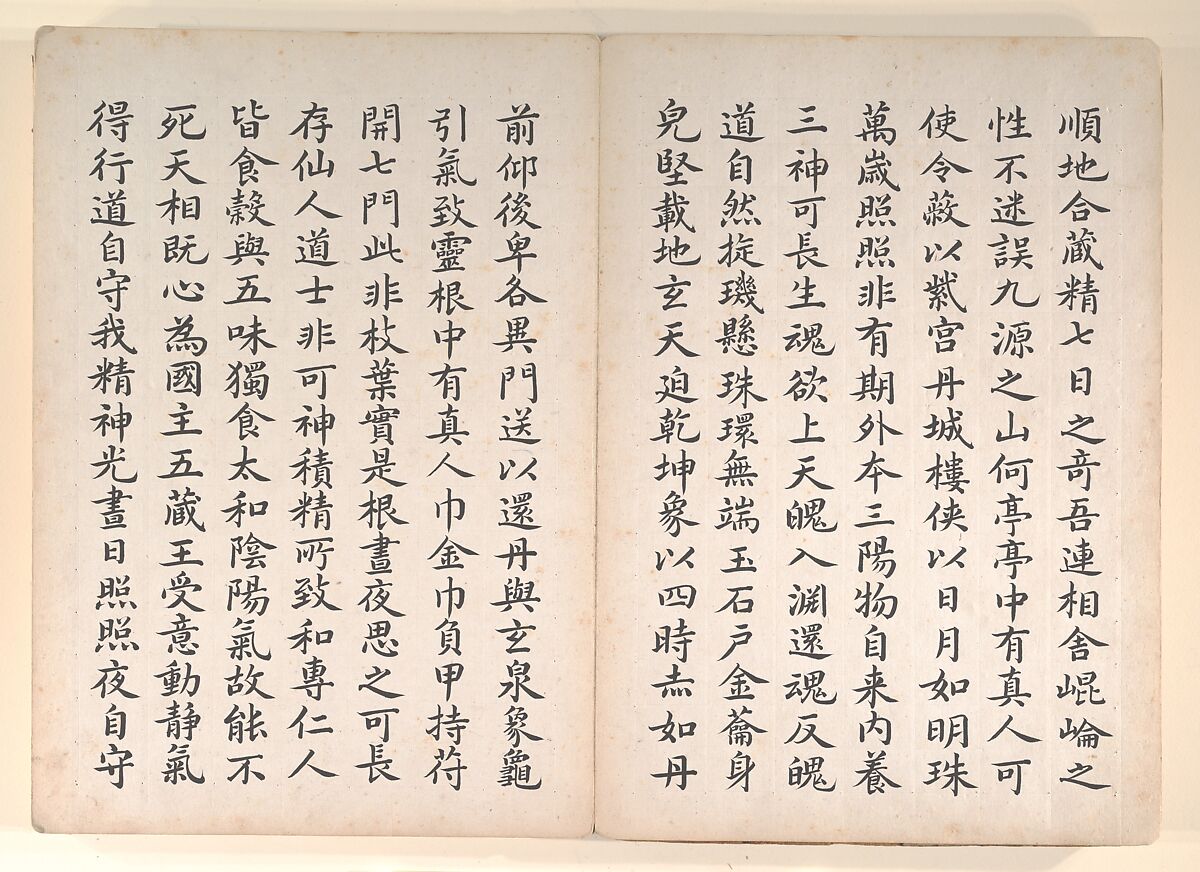 順地合藏精七日之奇吾連相舍崐崘之
性不迷誤九源之山何亭亭中有真人可
使令蔽以紫宫丹城樓俠以日月如明珠
萬歳照照非有期外夲三陽物自来内養
三神可長生魂欲上天魄入渊還魂反魄
道自然㨁璣懸珠環無端玉石戸金蘥身
皃堅載地玄天廹乾坤象以四時赤如丹
前仰後卑各異門送以還丹與玄泉象龜
引氣致靈根中有真人巾金巾負甲持苻
開七門此非枝葉實是根晝夜思之可長
存仙人道士非可神積精所致和專仁人
皆食穀與五味獨食太和陰陽氣故能不
死天相既心為國主五藏王受意動静氣
得行道自守我精神光晝日照照夜自守